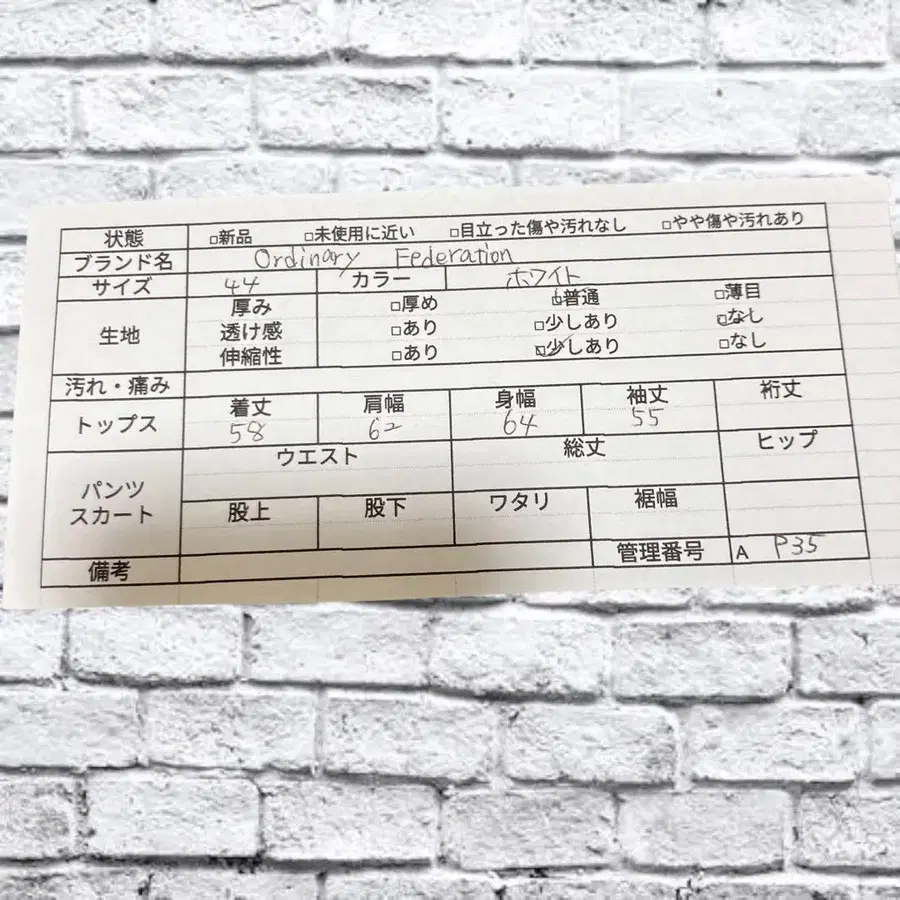 状態 □新品 □未使用に近い □目立った傷や汚れなし □やや傷や汚れあり
ブランド名 Ordinary Federation
サイズ 44 カラー ホワイト
生地 厚み □厚め ☑普通 □薄目
透け感 □あり □少しあり ☑なし
伸縮性 □あり ☑少しあり □なし
汚れ・痛み
トップス 着丈 肩幅 身幅 袖丈 裄丈
58 62 64 55
パンツ スカート ウエスト 総丈 ヒップ
股上 股下 ワタリ 裾幅
備考 管理番号 A P35